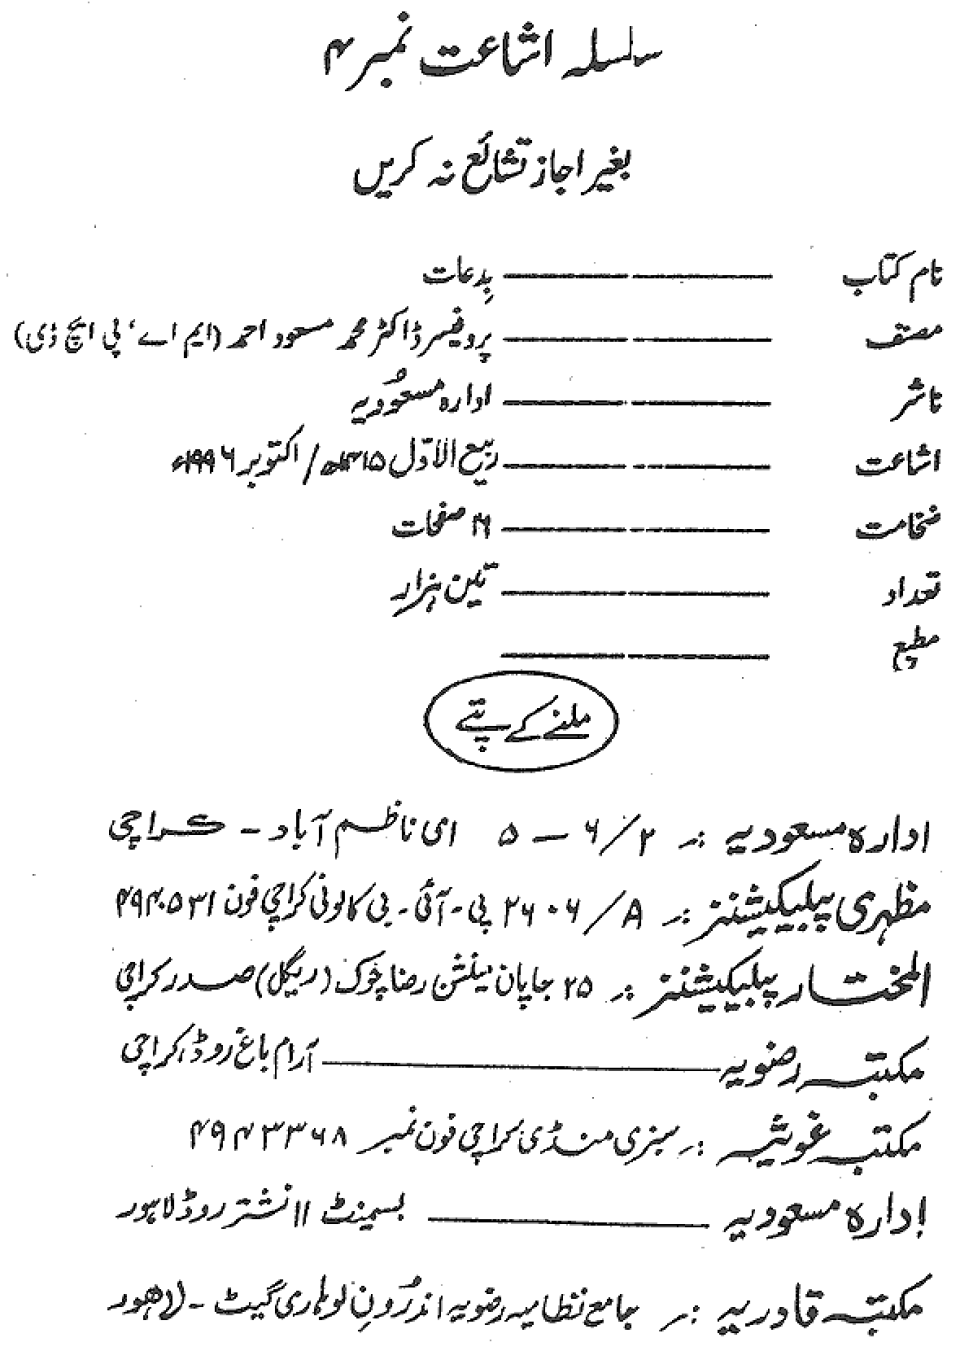 سلسلہ اشاعت نمبر ۴
بغیر اجازت شائع نہ کریں
نام کتاب ــــــ بدعات
مصنف ــــــ پروفیسر ڈاکٹر محمد مسعود احمد (ایم اے، پی ایچ ڈی)
ناشر ــــــ ادارہ مسعودیہ
اشاعت ــــــ ربیع الاوّل ۱۴۱۵ھ / اکتوبر ۱۹۹۶ء
ضخامت ــــــ صفحات
تعداد ــــــ تین ہزار
مطبع ــــــ
ملنے کے پتے
ادارہ مسعودیہ :۔ ۶/۲ – ۵ ای ناظم آباد - کراچی
مظہری پبلیکیشنز :۔ ۲۶۰۶/A پی-آئی-بی کالونی کراچی فون ۴۹۴۰۵۳۱
المختار پبلیکیشنز :۔ ۲۵ جاپان مینشن رضا چوک (ریگل) صدر کراچی
مکتبہ رضویہ ــــــ آرام باغ روڈ، کراچی
مکتبہ غوثیہ :۔ سبزی منڈی کراچی فون نمبر ۴۹۴۳۳۶۸
ادارہ مسعودیہ ــــــ بسمینٹ ۱۱ نشتر روڈ لاہور
مکتبہ قادریہ :۔ جامع نظامیہ رضویہ اندرُونِ لوہاری گیٹ - لاہور